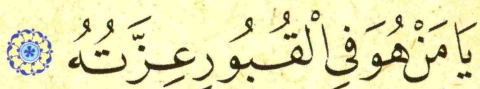 يَا مَنْ هُوَ فِي الْقُبُورِ عِزَّتُهُ